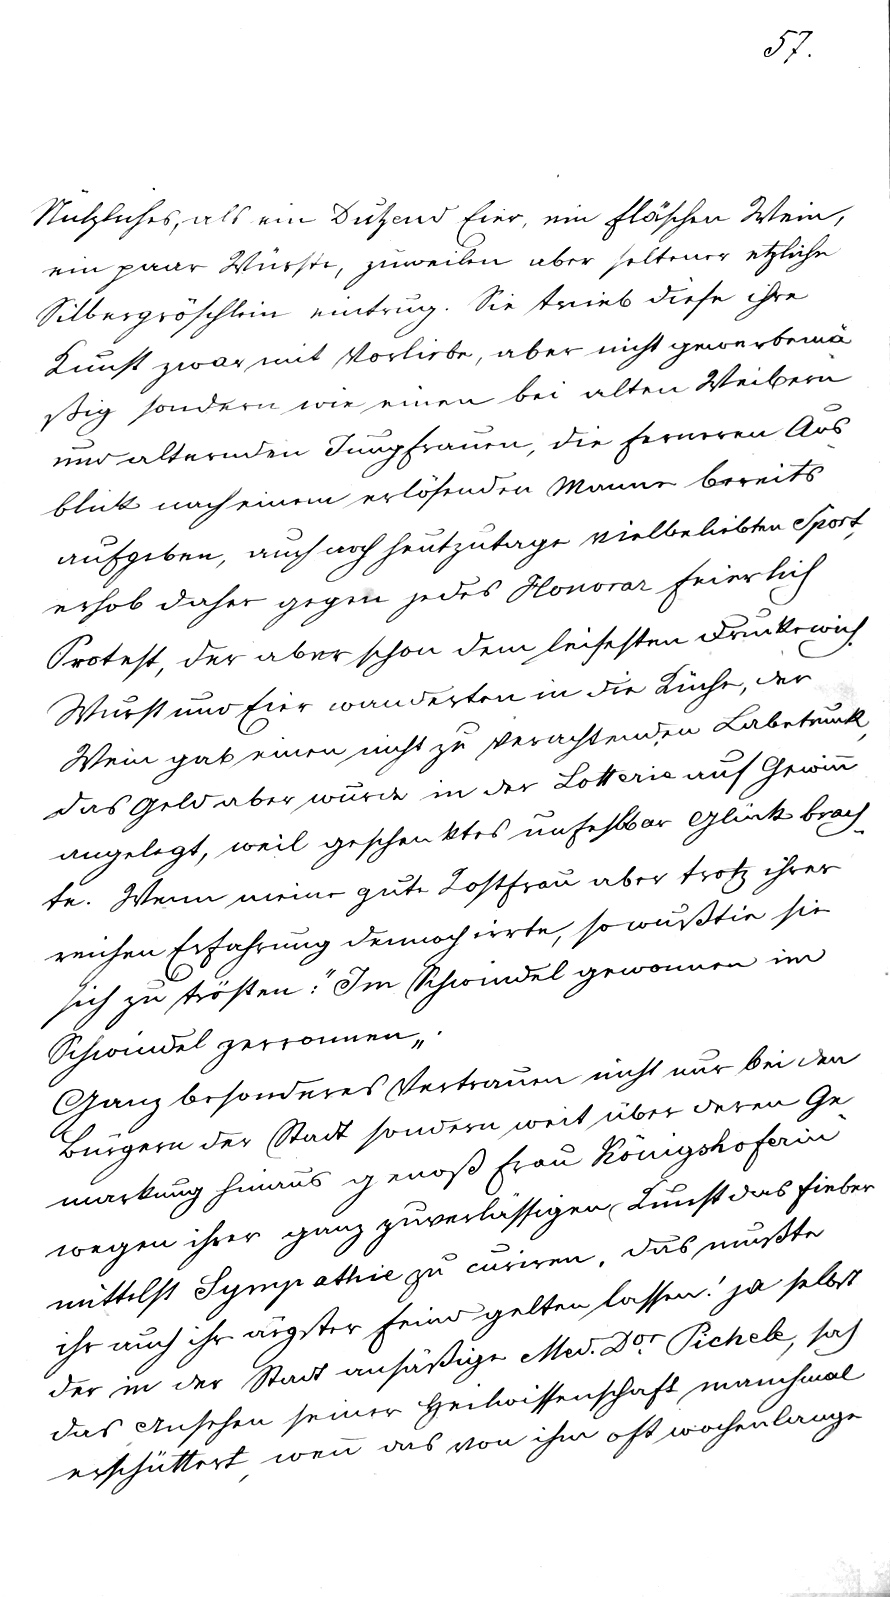 57.
Nützliches, als ein Dutzend Eier, ein Fläschen Wein,
ein paar Würste, zuweilen aber seltener etzliche
Silbergröschlein eintrug. Sie trieb diese ihre
Kunst zwar mit Vorliebe, aber nicht gewerbemä
ßig sondern wie einen bei alten Weibern
und alternden Jungfrauen, die ferneren Aus
blick nach einem erlösenden Manne bereits
aufgeben, auch noch heutzutage vielbeliebten Sport,
erhob daher gegen jedes Honorar feierlich
Protest, der aber schon dem leisesten Drucke wich.
Wurst und Eier wanderten in die Küche, der
Wein gab einen nicht zu verachtenden Labetrunk,
das Geld aber wurde in der Lotterie auf Gewin̄
angelegt, weil geschenktes unfehlbar Glück brach-
te. Wenn meine gute Kostfrau aber trotz ihrer
reichen Erfahrung dennoch irrte, so wußtie sie
sich zu trösten: "Im Schwindel gewonnen im
Schwindel zerronnen„.
Ganz besonderes Vertrauen nicht nur bei den
Bürgern der Stadt sondern weit über deren Ge
markung hinaus genoß Frau Königshoferin
wegen ihrer ganz zuverlässigen Kunst das Fieber
mittelst Sympathie zu curiren. Das mußte
ihr auch ihr ärgster Feind gelten lassen! ja selbst
der in der Stadt ansäßige Med. Dor. Pichele, sah
das Ansehen seiner Heilwissenschaft manchmal
erschüttert, wen̄ das von ihm oft wochenlange